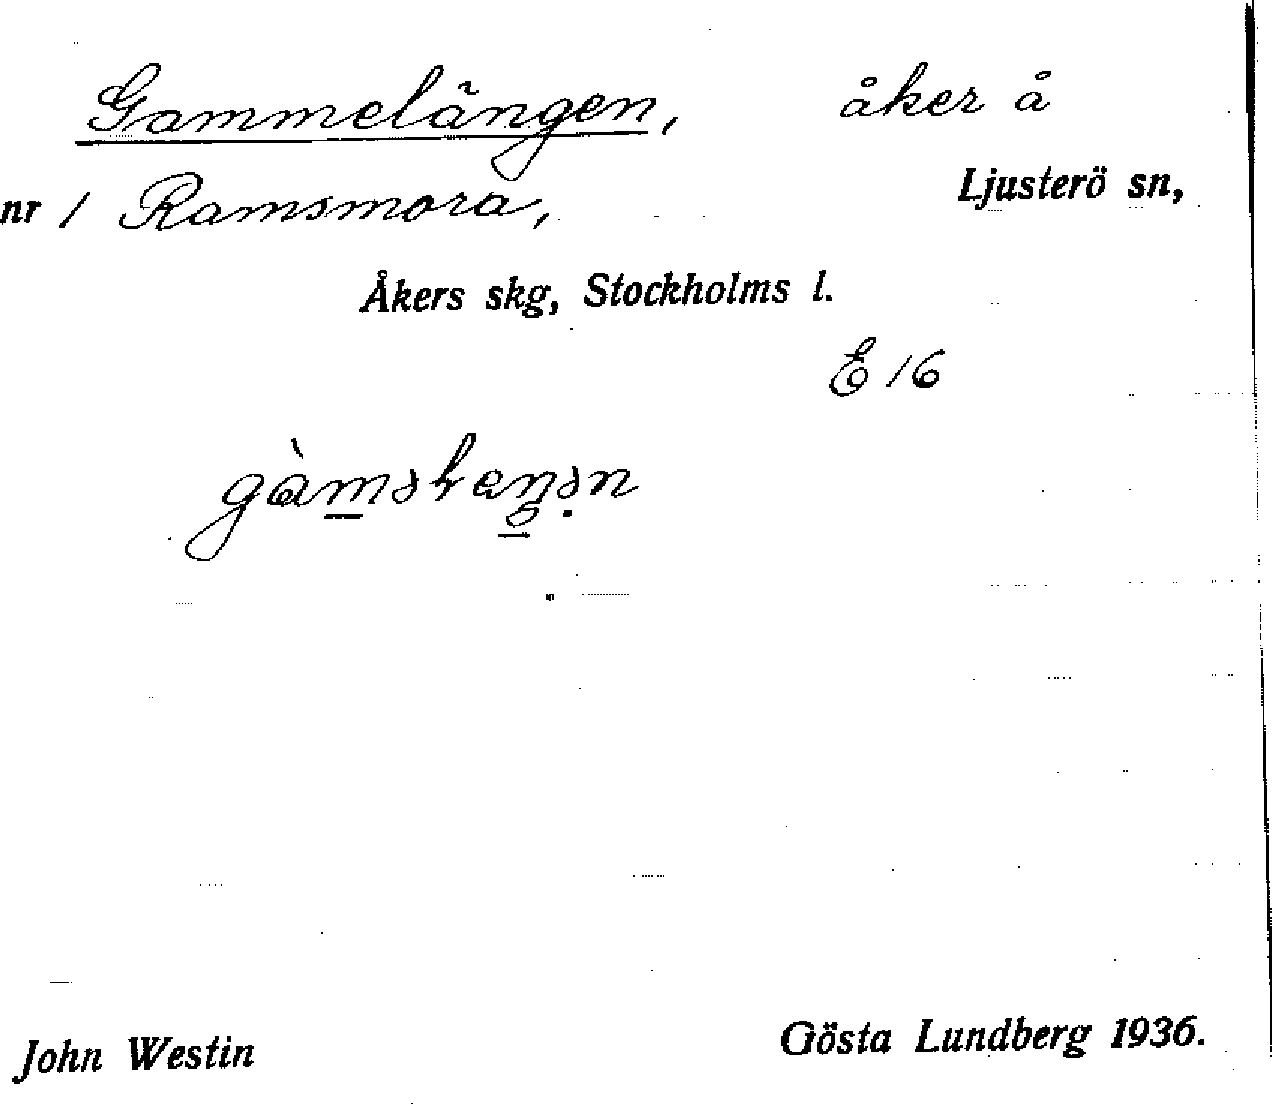 Gammelängen, åker å
Ljusterö sn,
nr 1 Ramsmora,
Åkers skg, Stockholms l.
E 16
John Westin
Gösta Lundberg 1936.